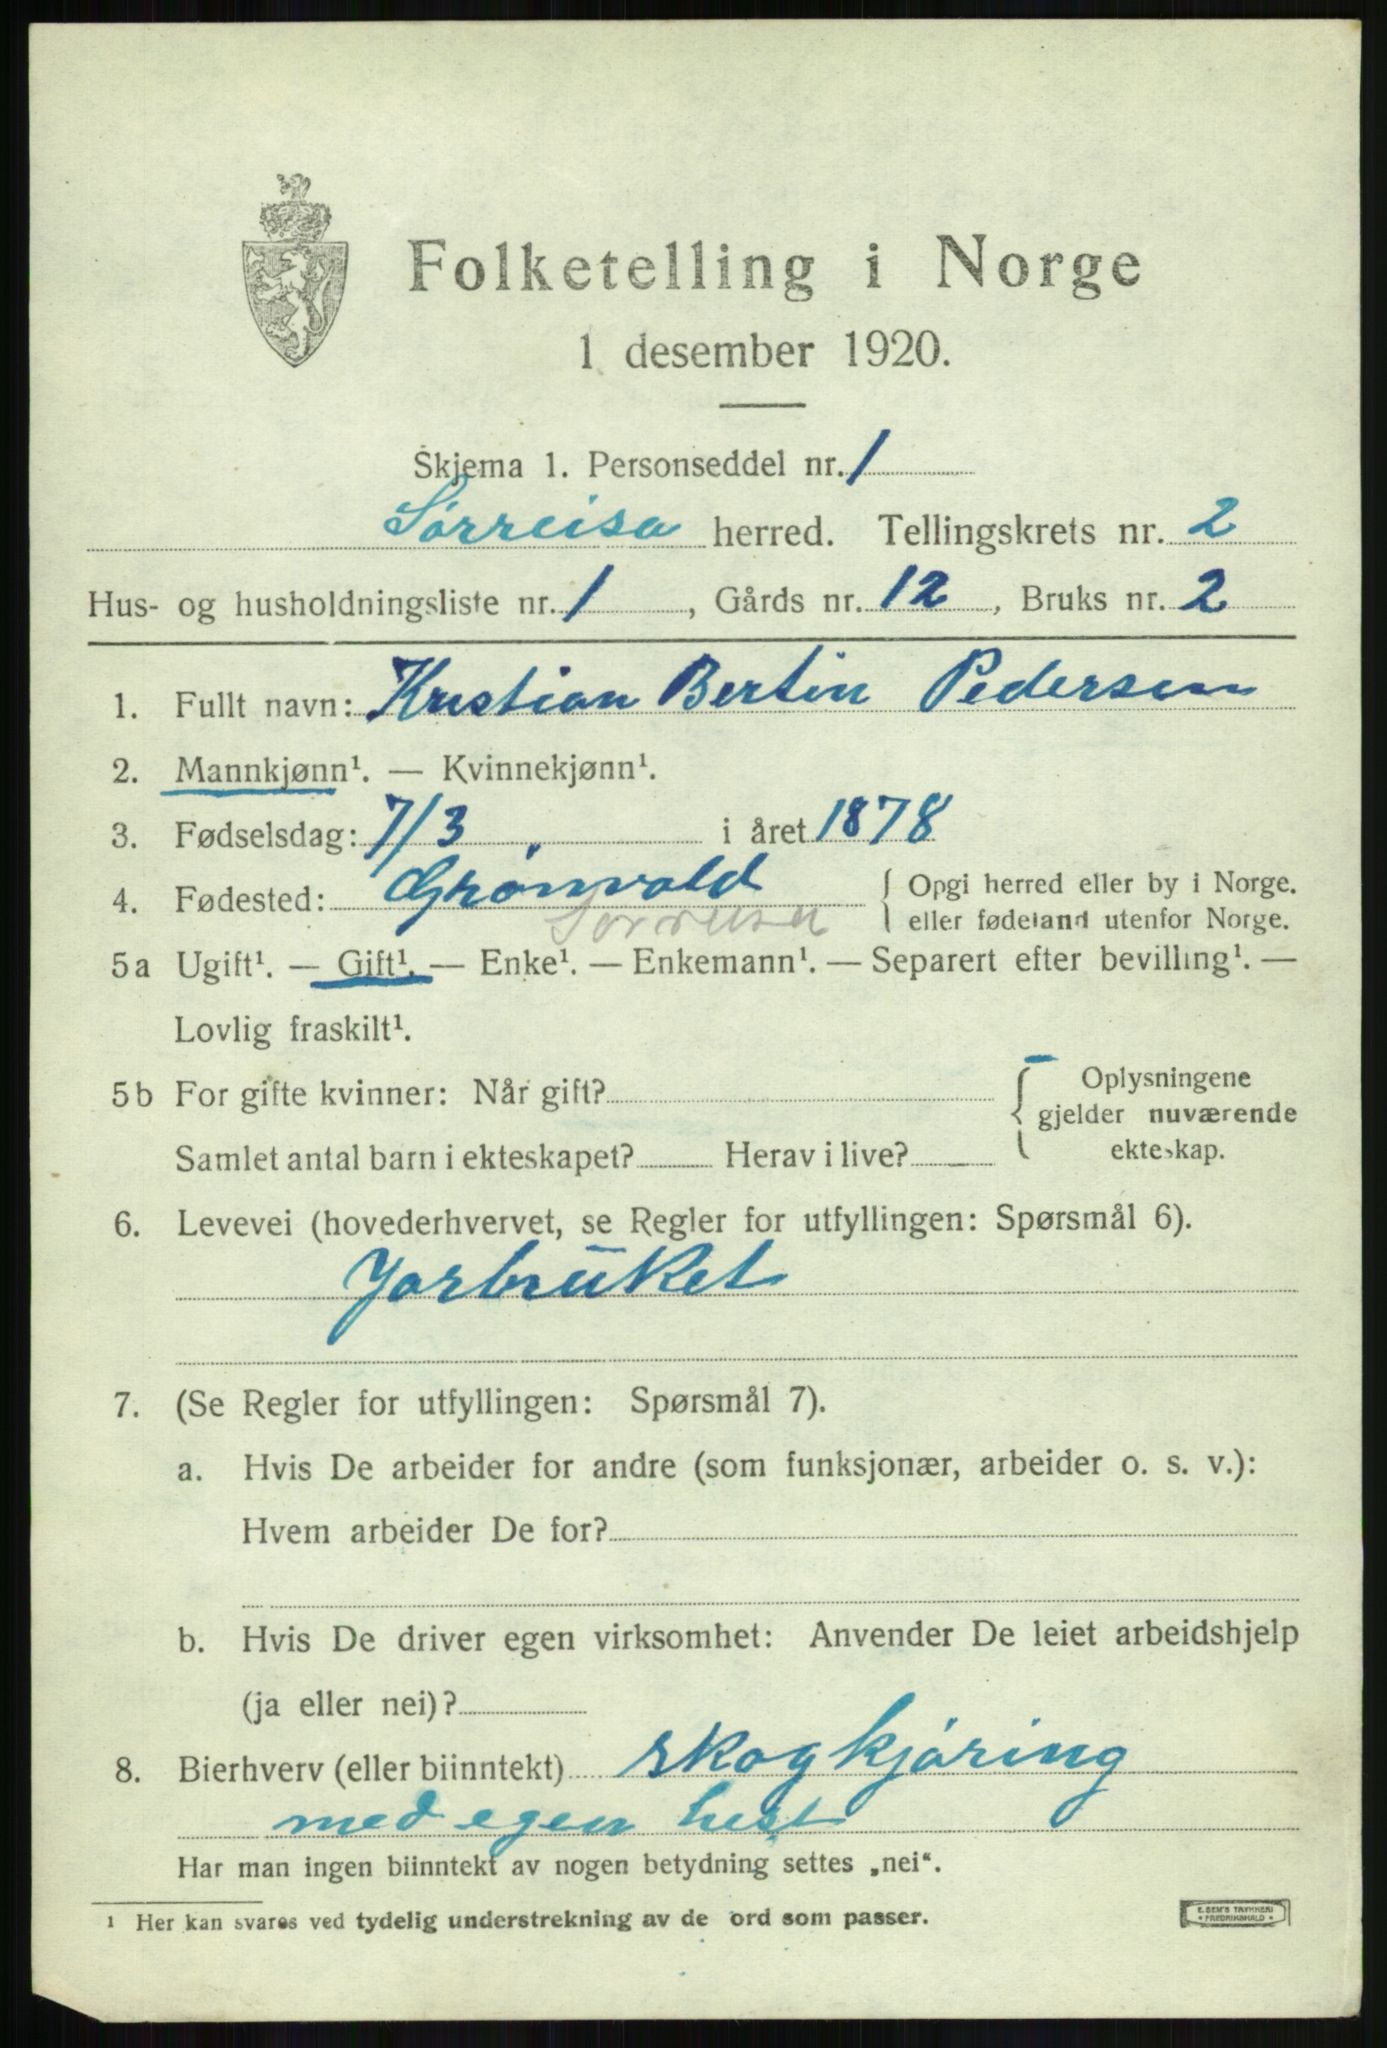 Folketelling i Norge
1 desember 1920.
Skjema 1. Personseddel nr. 1
Sørreisa herred. Tellingskrets nr. 2
Hus- og husholdningsliste nr. 1, Gårds nr. 12, Bruks nr. 2
1. Fullt navn: Kristian Bertin Pedersen
2. Mannkjønn¹. — Kvinnekjønn¹.
3. Fødselsdag: 7/3 i året 1878
4. Fødested: Grønvold { Opgi herred eller by i Norge.
Sørreisa eller fødeland utenfor Norge.
5a Ugift¹. — Gift¹. — Enke¹. — Enkemann¹. — Separert efter bevilling¹. —
Lovlig fraskilt¹.
5b For gifte kvinner: Når gift? { Oplysningene
gjelder nuværende
Samlet antal barn i ekteskapet? Herav i live? ekteskap.
6. Levevei (hovederhvervet, se Regler for utfyllingen: Spørsmål 6).
Jorbrūket
7. (Se Regler for utfyllingen: Spørsmål 7).
a. Hvis De arbeider for andre (som funksjonær, arbeider o. s. v.):
Hvem arbeider De for?
b. Hvis De driver egen virksomhet: Anvender De leiet arbeidshjelp
(ja eller nei)?
8. Bierhverv (eller biinntekt) skogkjøring
med egen hest
Har man ingen biinntekt av nogen betydning settes „nei“.
¹ Her kan svares ved tydelig understrekning av de ord som passer.
E. SEM'S TRYKKERI
FREDRIKSHALD